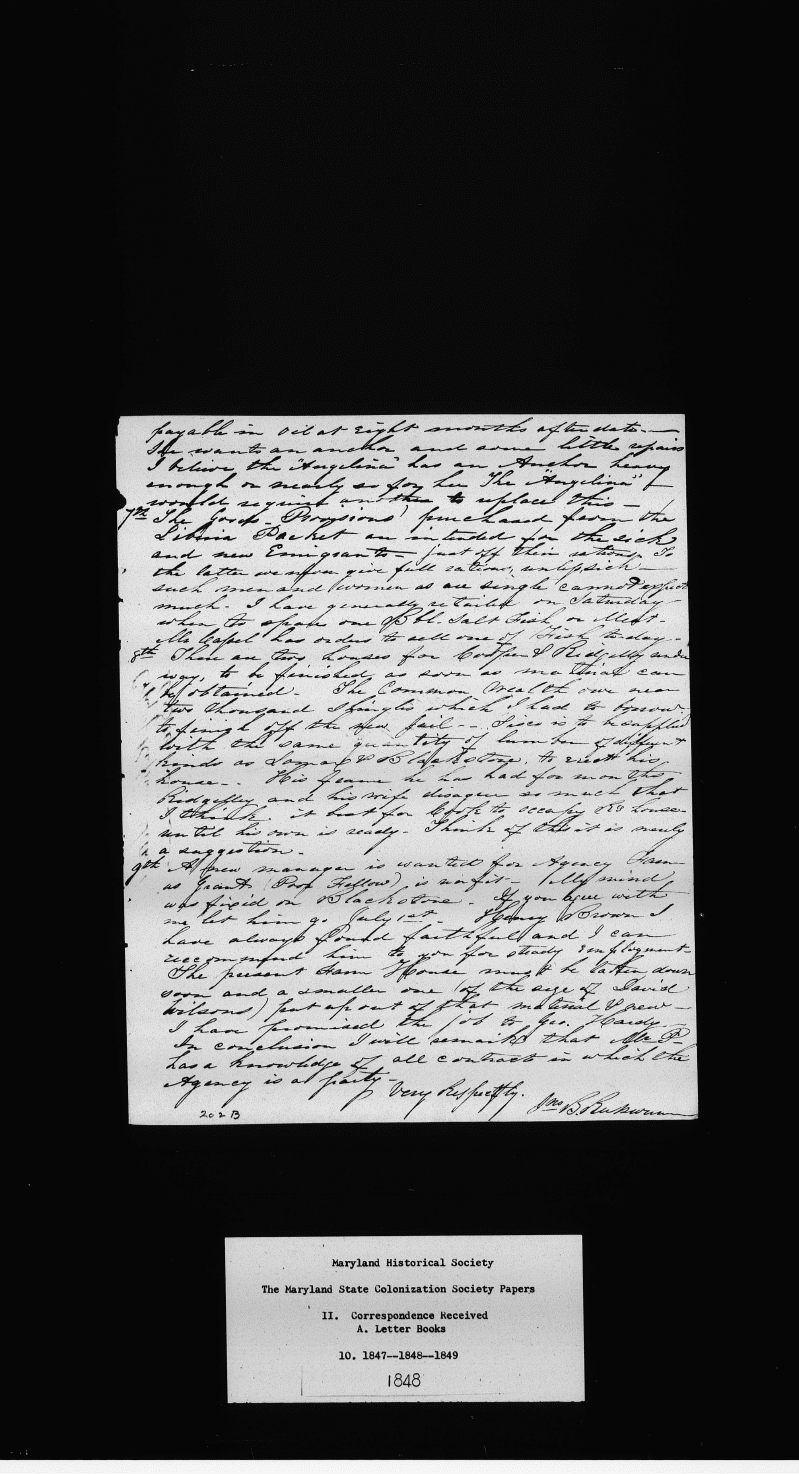 payable in oil at Eight months after date. —
She wants an anchor and some little repairs
I believe the "Angelina" has an Anchor heavy
enough or nearly so for her The "Angelina"
would require another to replace this —
7th The Goods (Provisions) purchased from the
Liberia Packet are intended for the sick
and new Emigrants — just off their rations. To
the latter we now give full rations, unless sick —
such men and women as are single cannot expect
much. I have generally retailed on Saturday
when to spare one Bbl. Salt Fish or Meat.
Mr Capel has orders to sell one of Fish to day. -
8th There are two houses for Cooper & Ridgelly under
way, to be finished as soon as material can
be obtained. The Common Wealth owe near
two thousand Shingles which I had to borrow
to finish off the new jail - - is to be supplied
with the same quantity of lumber of different
kinds as Lomax & Blackstone, to erect his
house -. His frame he has had for months
Ridgelly and his wife disagree so much that
I think it best for Cook to occupy house
until his own is ready - Think of this it is merely
a suggestion. -
9th A new manager is wanted for Agency Farm
as Grant (Poor Fellow) is unfit - My mind
was fixed on Blackstone. If you agree with
me let him go July 1st. Henry Brown I
have always found faithful and I can
recommend him to you for steady employment -
The present Farm House must be taken down
soon and a smaller one (of the size of David
Wilsons) put up out of that material & new —
I have promised the job to Geo. Hardy —
In conclusion I will remark that Mr P-
has a knowledge of all contracts in which the
Agency is a party -
Very Respectfly.
Jno B. Russwurm
202B
Maryland Historical Society
The Maryland State Colonization Society Papers
II. Correspondence Received
A. Letter Books
10. 1847--1848--1849
1848